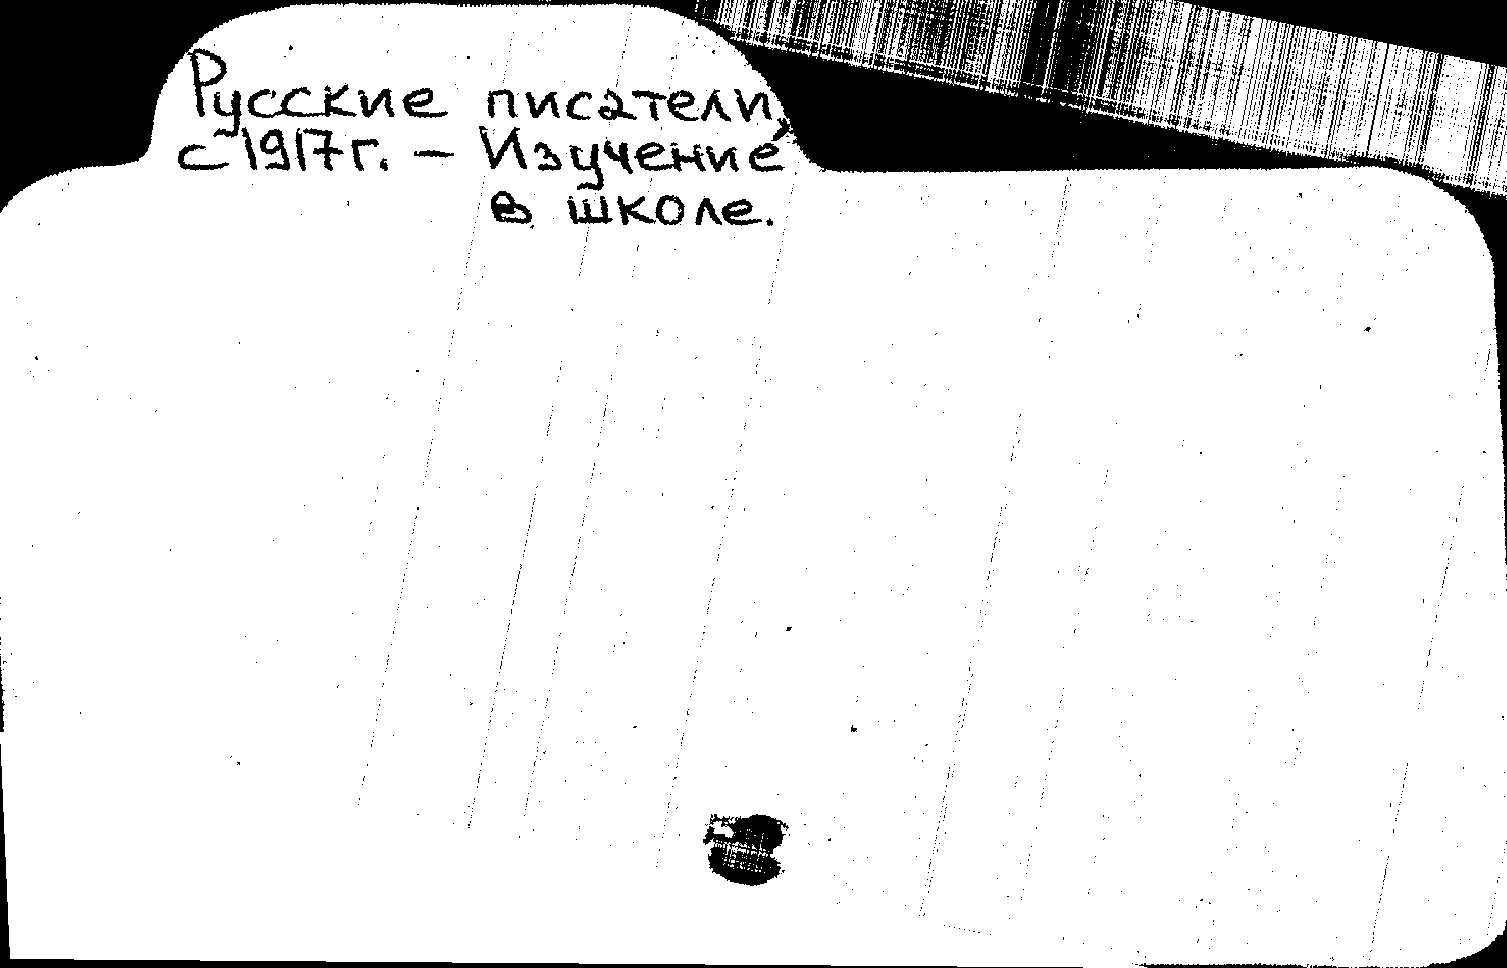 Русские писатели,
с 1917 г. — Изучение
в школе.